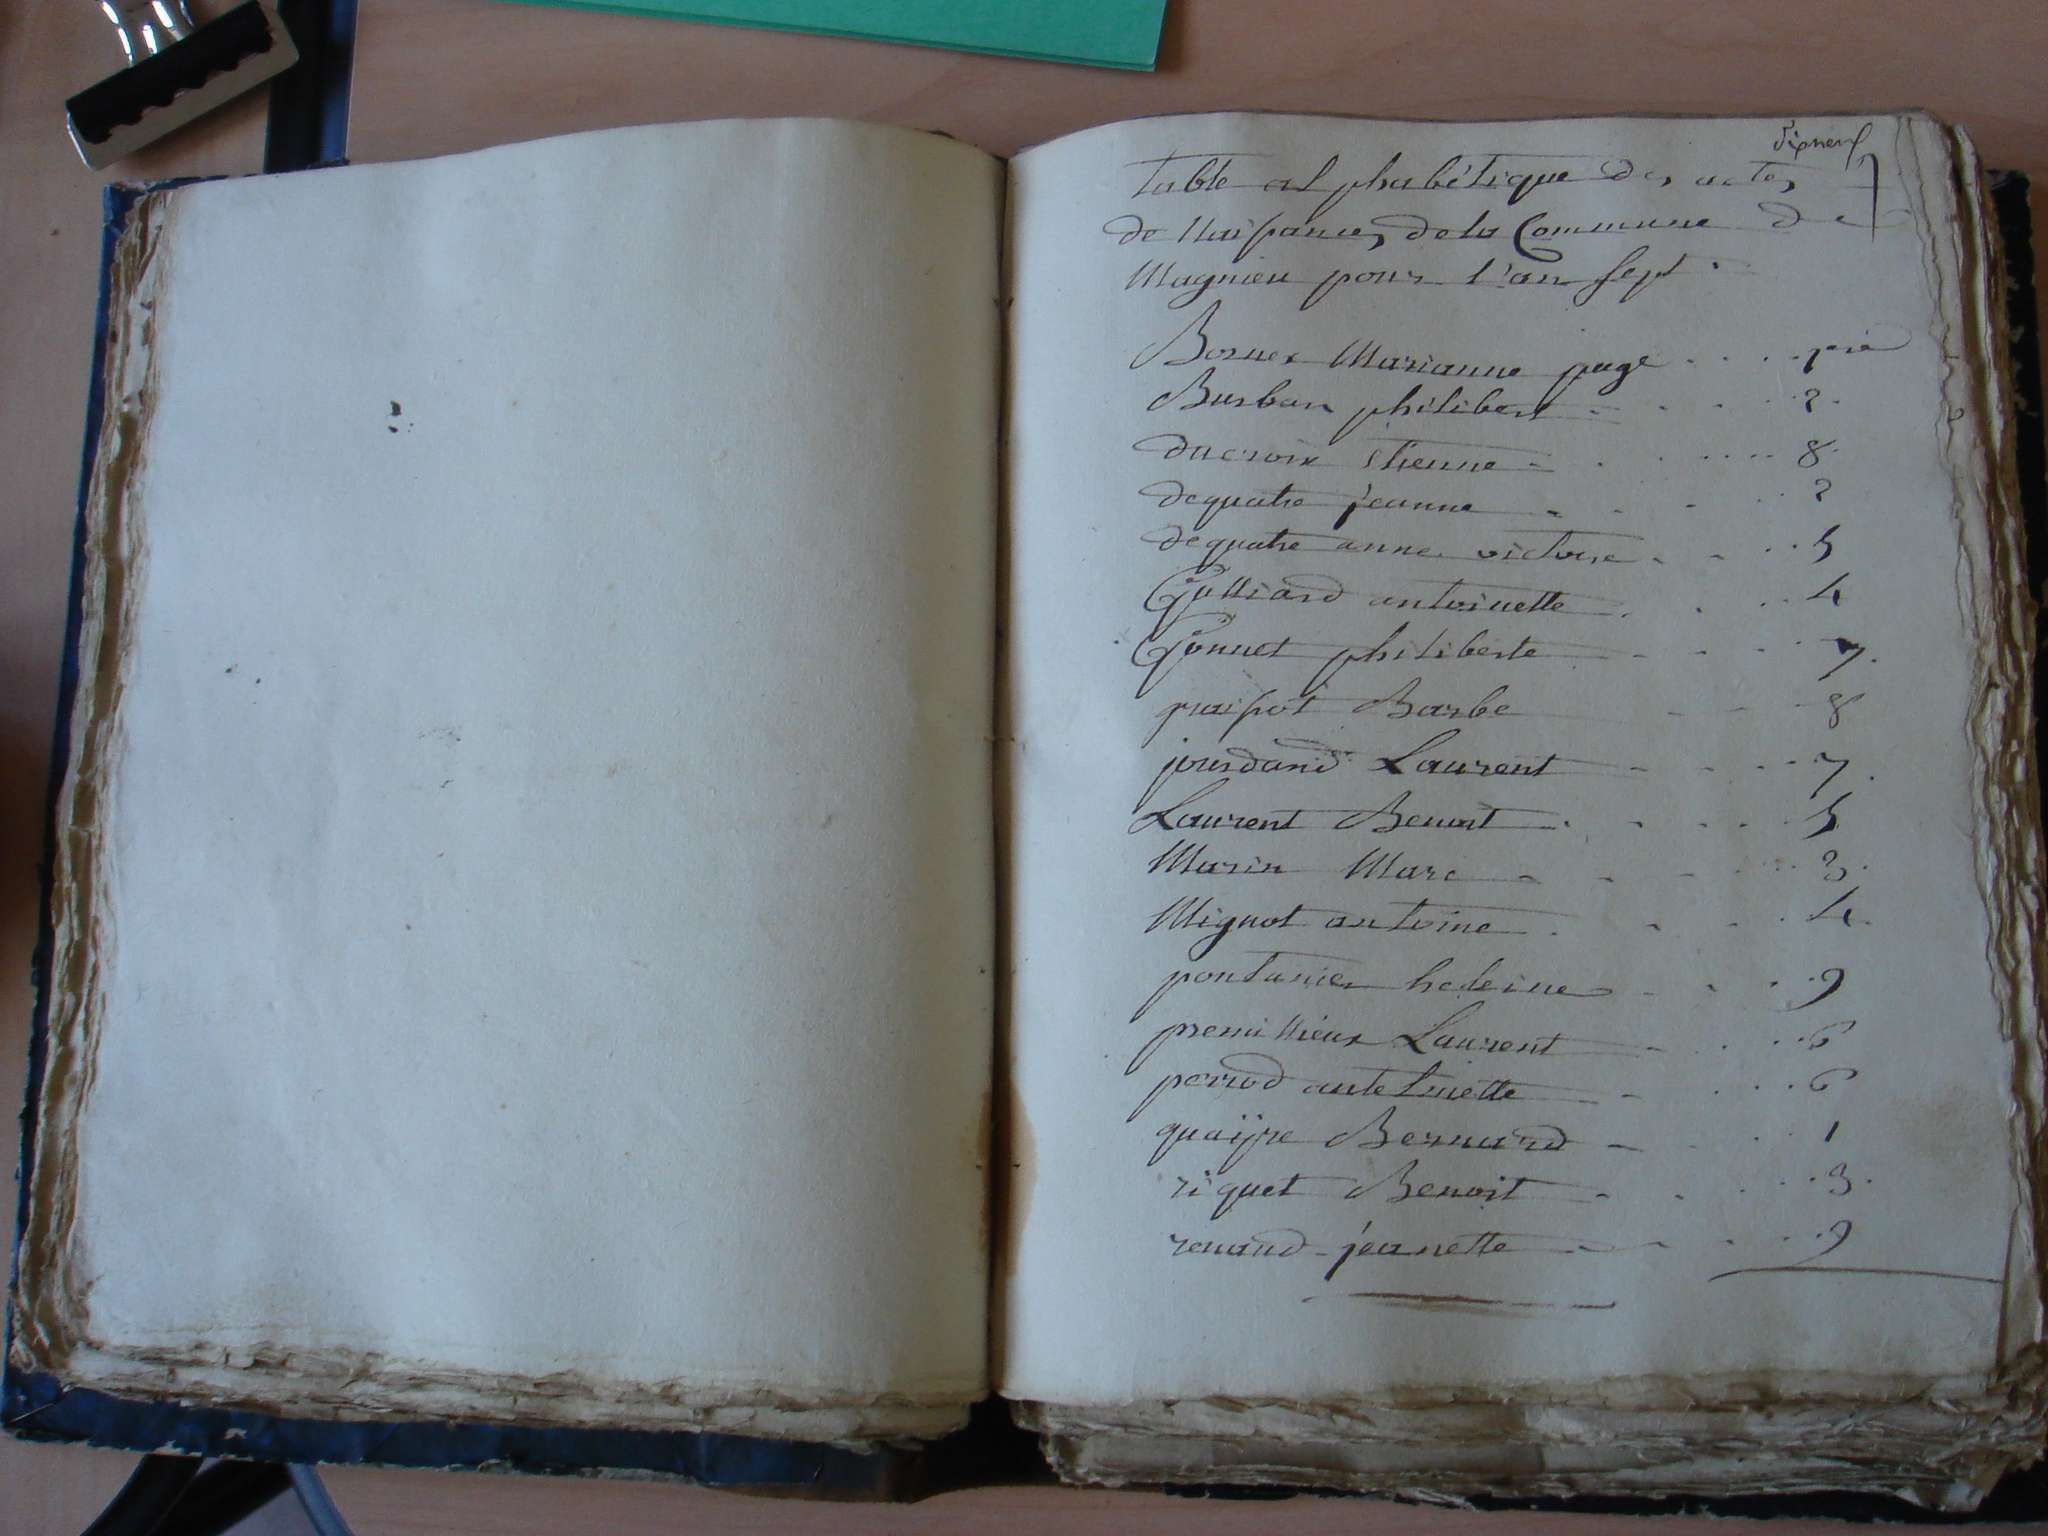 dixneuf
table alphabétique des actes
de Naissances de la Commune de
Magnieu pour l'an sept
Bornex Marianne page pre
Burban philibert 2
ducroix etienne 8
dequatre jeanne 2
dequatre anne victoire 5
Galliard antoinette 4
Gonnet philiberte 7
Barbe 8
jourdand Laurent 7
Laurent Benoit 5
Marin Marc 3
Mignot antoine 4
pontanier heleine 9
premillieux Laurent 6
perrod antelmette 6
Bernard 1
riquet Benoit 3
renaud jeanette 9